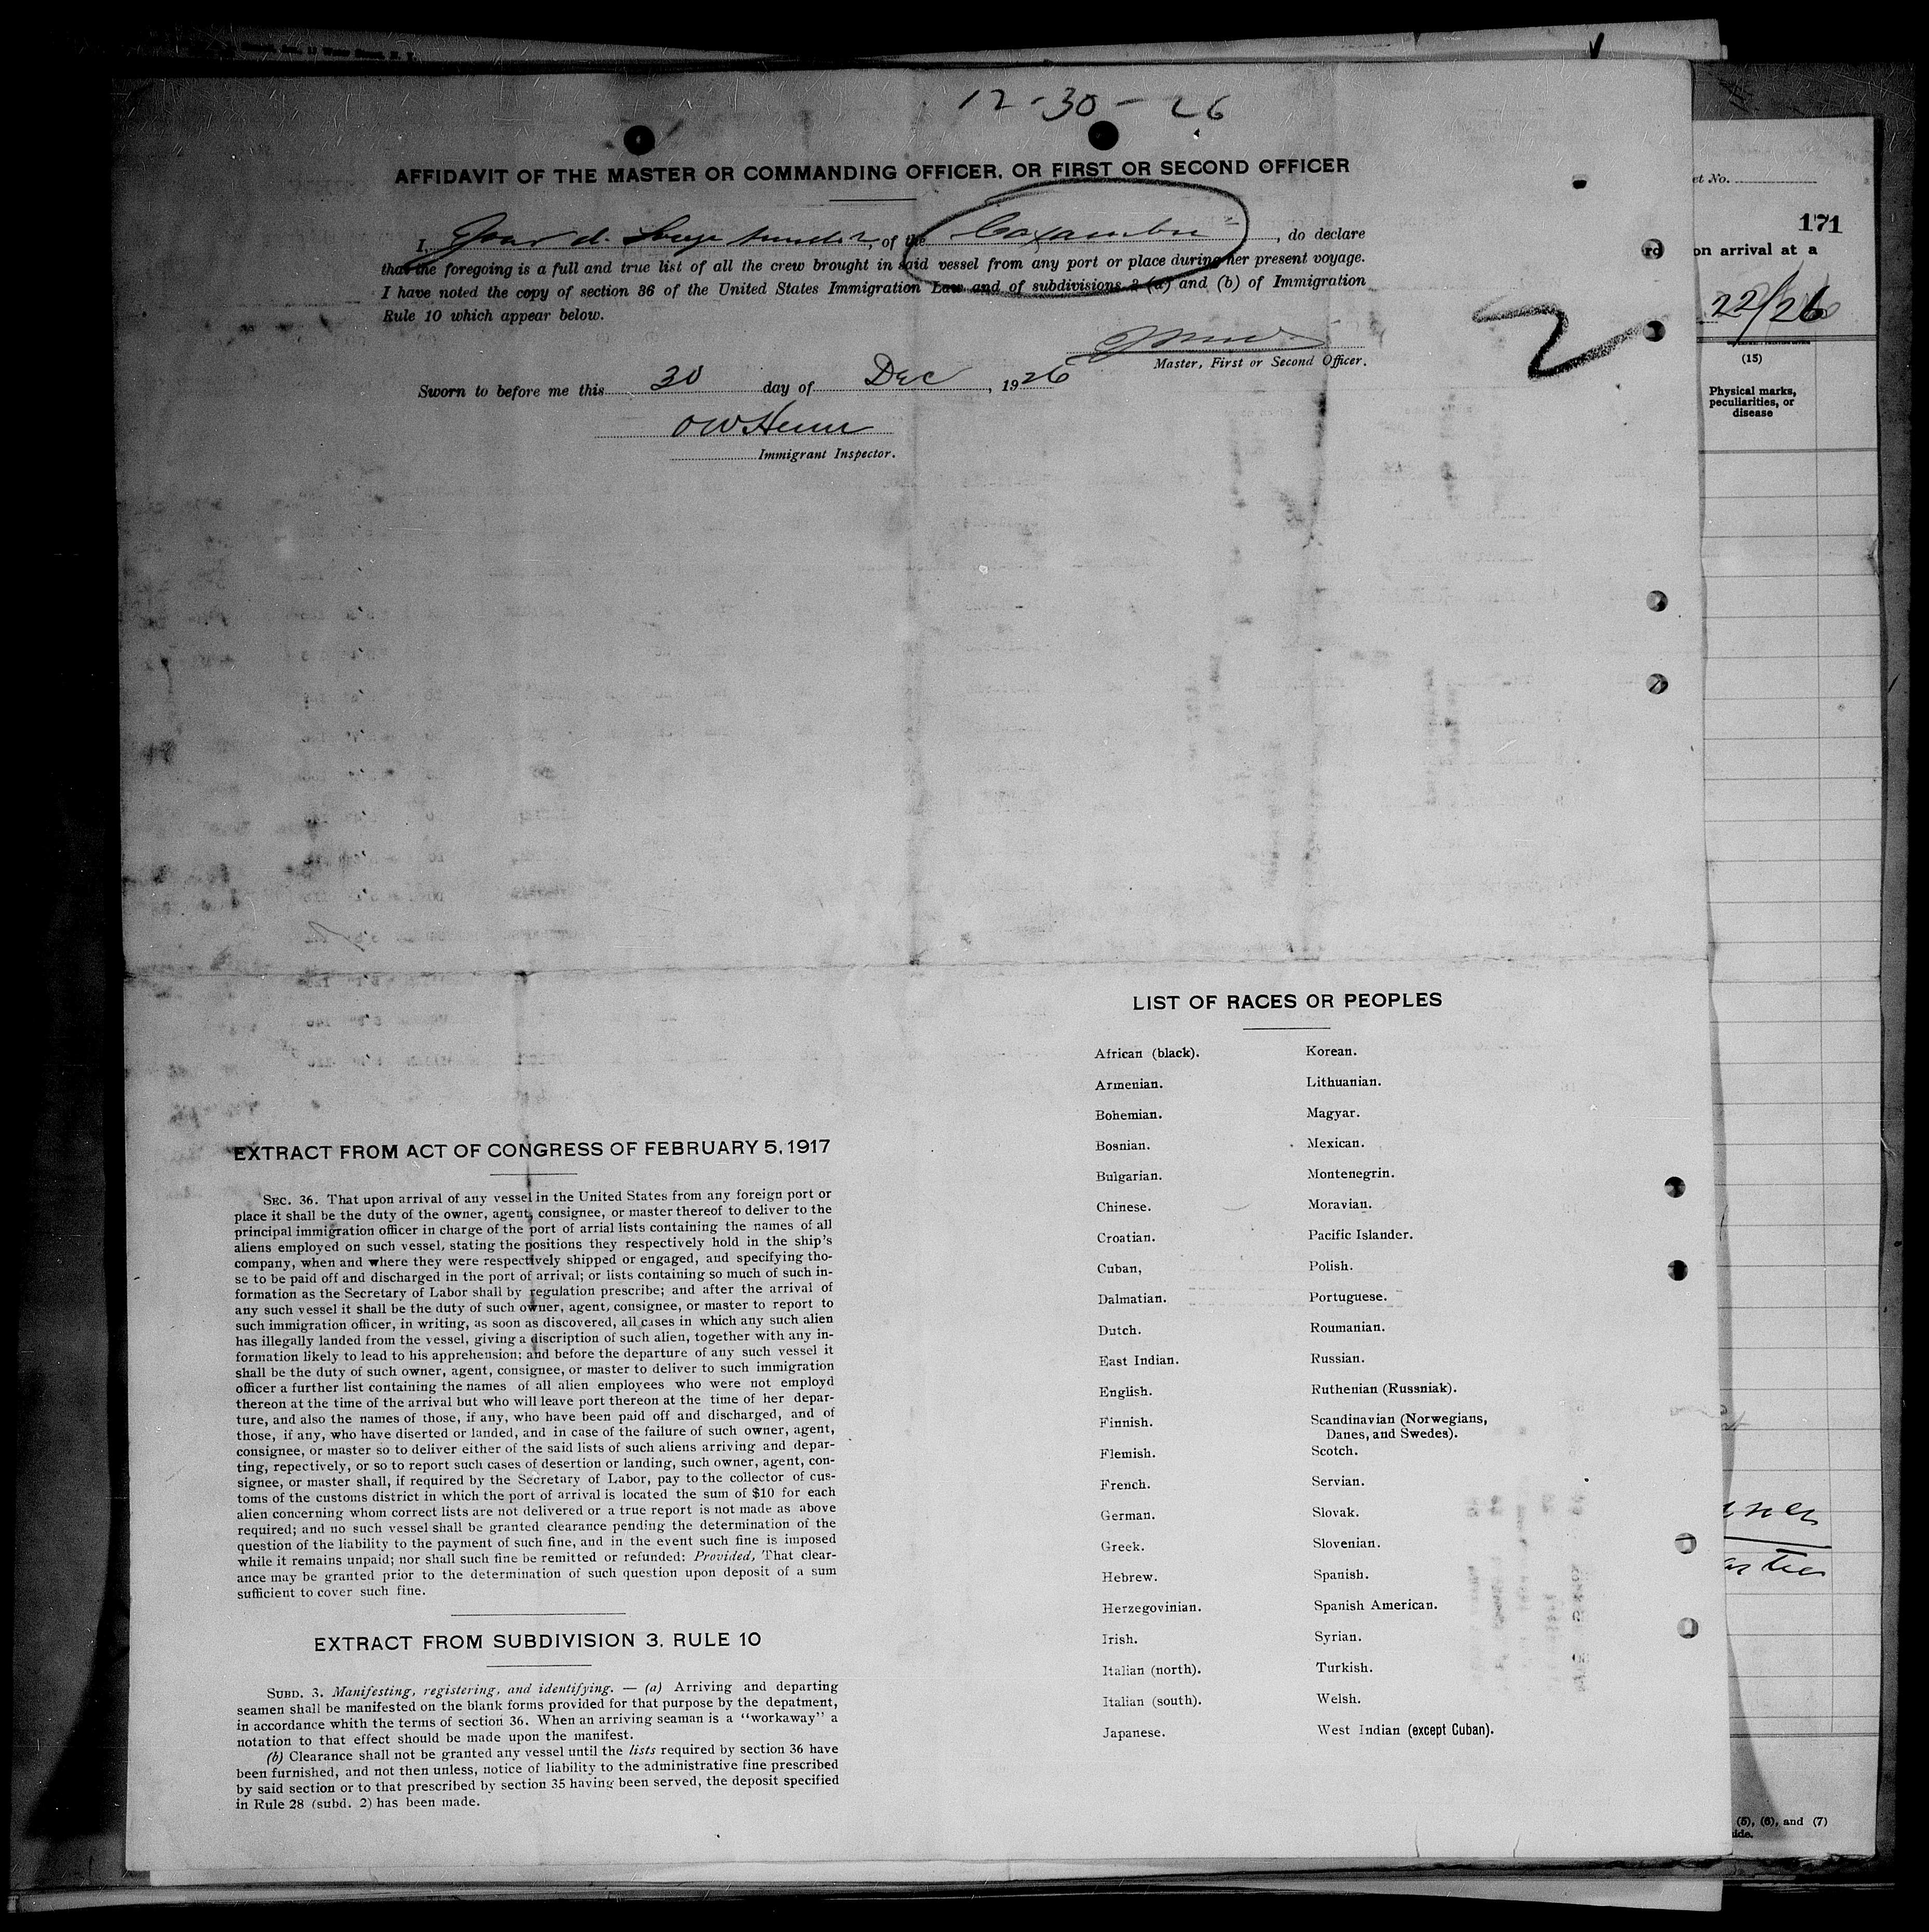 12-30-26
AFFIDAVIT OF THE MASTER OR COMMANDING OFFICER, OR FIRST OR SECOND OFFICER
I, of the Caxambu, do declare
that the foregoing is a full and true list of all the crew brought in said vessel from any port or place during her present voyage.
I have noted the copy of section 36 of the United States Immigration Law and of subdivisions 2 (a) and (b) of Immigration
Rule 10 which appear below.
Master, First or Second Officer.
Sworn to before me this 30 day of Dec, 1926
Immigrant Inspector.
2
et No.
171
on arrival at a
22/26
(15)
Physical marks,
peculiarities, or
disease
LIST OF RACES OR PEOPLES
African (black). Korean.
Armenian. Lithuanian.
Bohemian. Magyar.
Bosnian. Mexican.
Bulgarian. Montenegrin.
Chinese. Moravian.
Croatian. Pacific Islander.
Cuban, Polish.
Dalmatian. Portuguese.
Dutch. Roumanian.
East Indian. Russian.
English. Ruthenian (Russniak).
Finnish. Scandinavian (Norwegians,
Danes, and Swedes).
Flemish. Scotch.
French. Servian.
German. Slovak.
Greek. Slovenian.
Hebrew. Spanish.
Herzegovinian. Spanish American.
Irish. Syrian.
Italian (north). Turkish.
Italian (south). Welsh.
Japanese. West Indian (except Cuban).
EXTRACT FROM ACT OF CONGRESS OF FEBRUARY 5, 1917
SEC. 36. That upon arrival of any vessel in the United States from any foreign port or
place it shall be the duty of the owner, agent, consignee, or master thereof to deliver to the
principal immigration officer in charge of the port of arrial lists containing the names of all
aliens employed on such vessel, stating the positions they respectively hold in the ship's
company, when and where they were respectively shipped or engaged, and specifying tho-
se to be paid off and discharged in the port of arrival; or lists containing so much of such in-
formation as the Secretary of Labor shall by regulation prescribe; and after the arrival of
any such vessel it shall be the duty of such owner, agent, consignee, or master to report to
such immigration officer, in writing, as soon as discovered, all cases in which any such alien
has illegally landed from the vessel, giving a discription of such alien, together with any in-
formation likely to lead to his apprehension; and before the departure of any such vessel it
shall be the duty of such owner, agent, consignee, or master to deliver to such immigration
officer a further list containing the names of all alien employees who were not employd
thereon at the time of the arrival but who will leave port thereon at the time of her depar-
ture, and also the names of those, if any, who have been paid off and discharged, and of
those, if any, who have diserted or landed, and in case of the failure of such owner, agent,
consignee, or master so to deliver either of the said lists of such aliens arriving and depar-
ting, repectively, or so to report such cases of desertion or landing, such owner, agent, con-
signee, or master shall, if required by the Secretary of Labor, pay to the collector of cus-
toms of the customs district in which the port of arrival is located the sum of $10 for each
alien concerning whom correct lists are not delivered or a true report is not made as above
required; and no such vessel shall be granted clearance pending the determination of the
question of the liability to the payment of such fine, and in the event such fine is imposed
while it remains unpaid; nor shall such fine be remitted or refunded: Provided, That clear-
ance may be granted prior to the determination of such question upon deposit of a sum
sufficient to cover such fine.
EXTRACT FROM SUBDIVISION 3, RULE 10
SUBD. 3. Manifesting, registering, and identifying. — (a) Arriving and departing
seamen shall be manifested on the blank forms provided for that purpose by the depatment,
in accordance whith the terms of section 36. When an arriving seaman is a "workaway" a
notation to that effect should be made upon the manifest.
(b) Clearance shall not be granted any vessel until the lists required by section 36 have
been furnished, and not then unless, notice of liability to the administrative fine prescribed
by said section or to that prescribed by section 35 having been served, the deposit specified
in Rule 28 (subd. 2) has been made.
(5), (6), and (7)
ide.